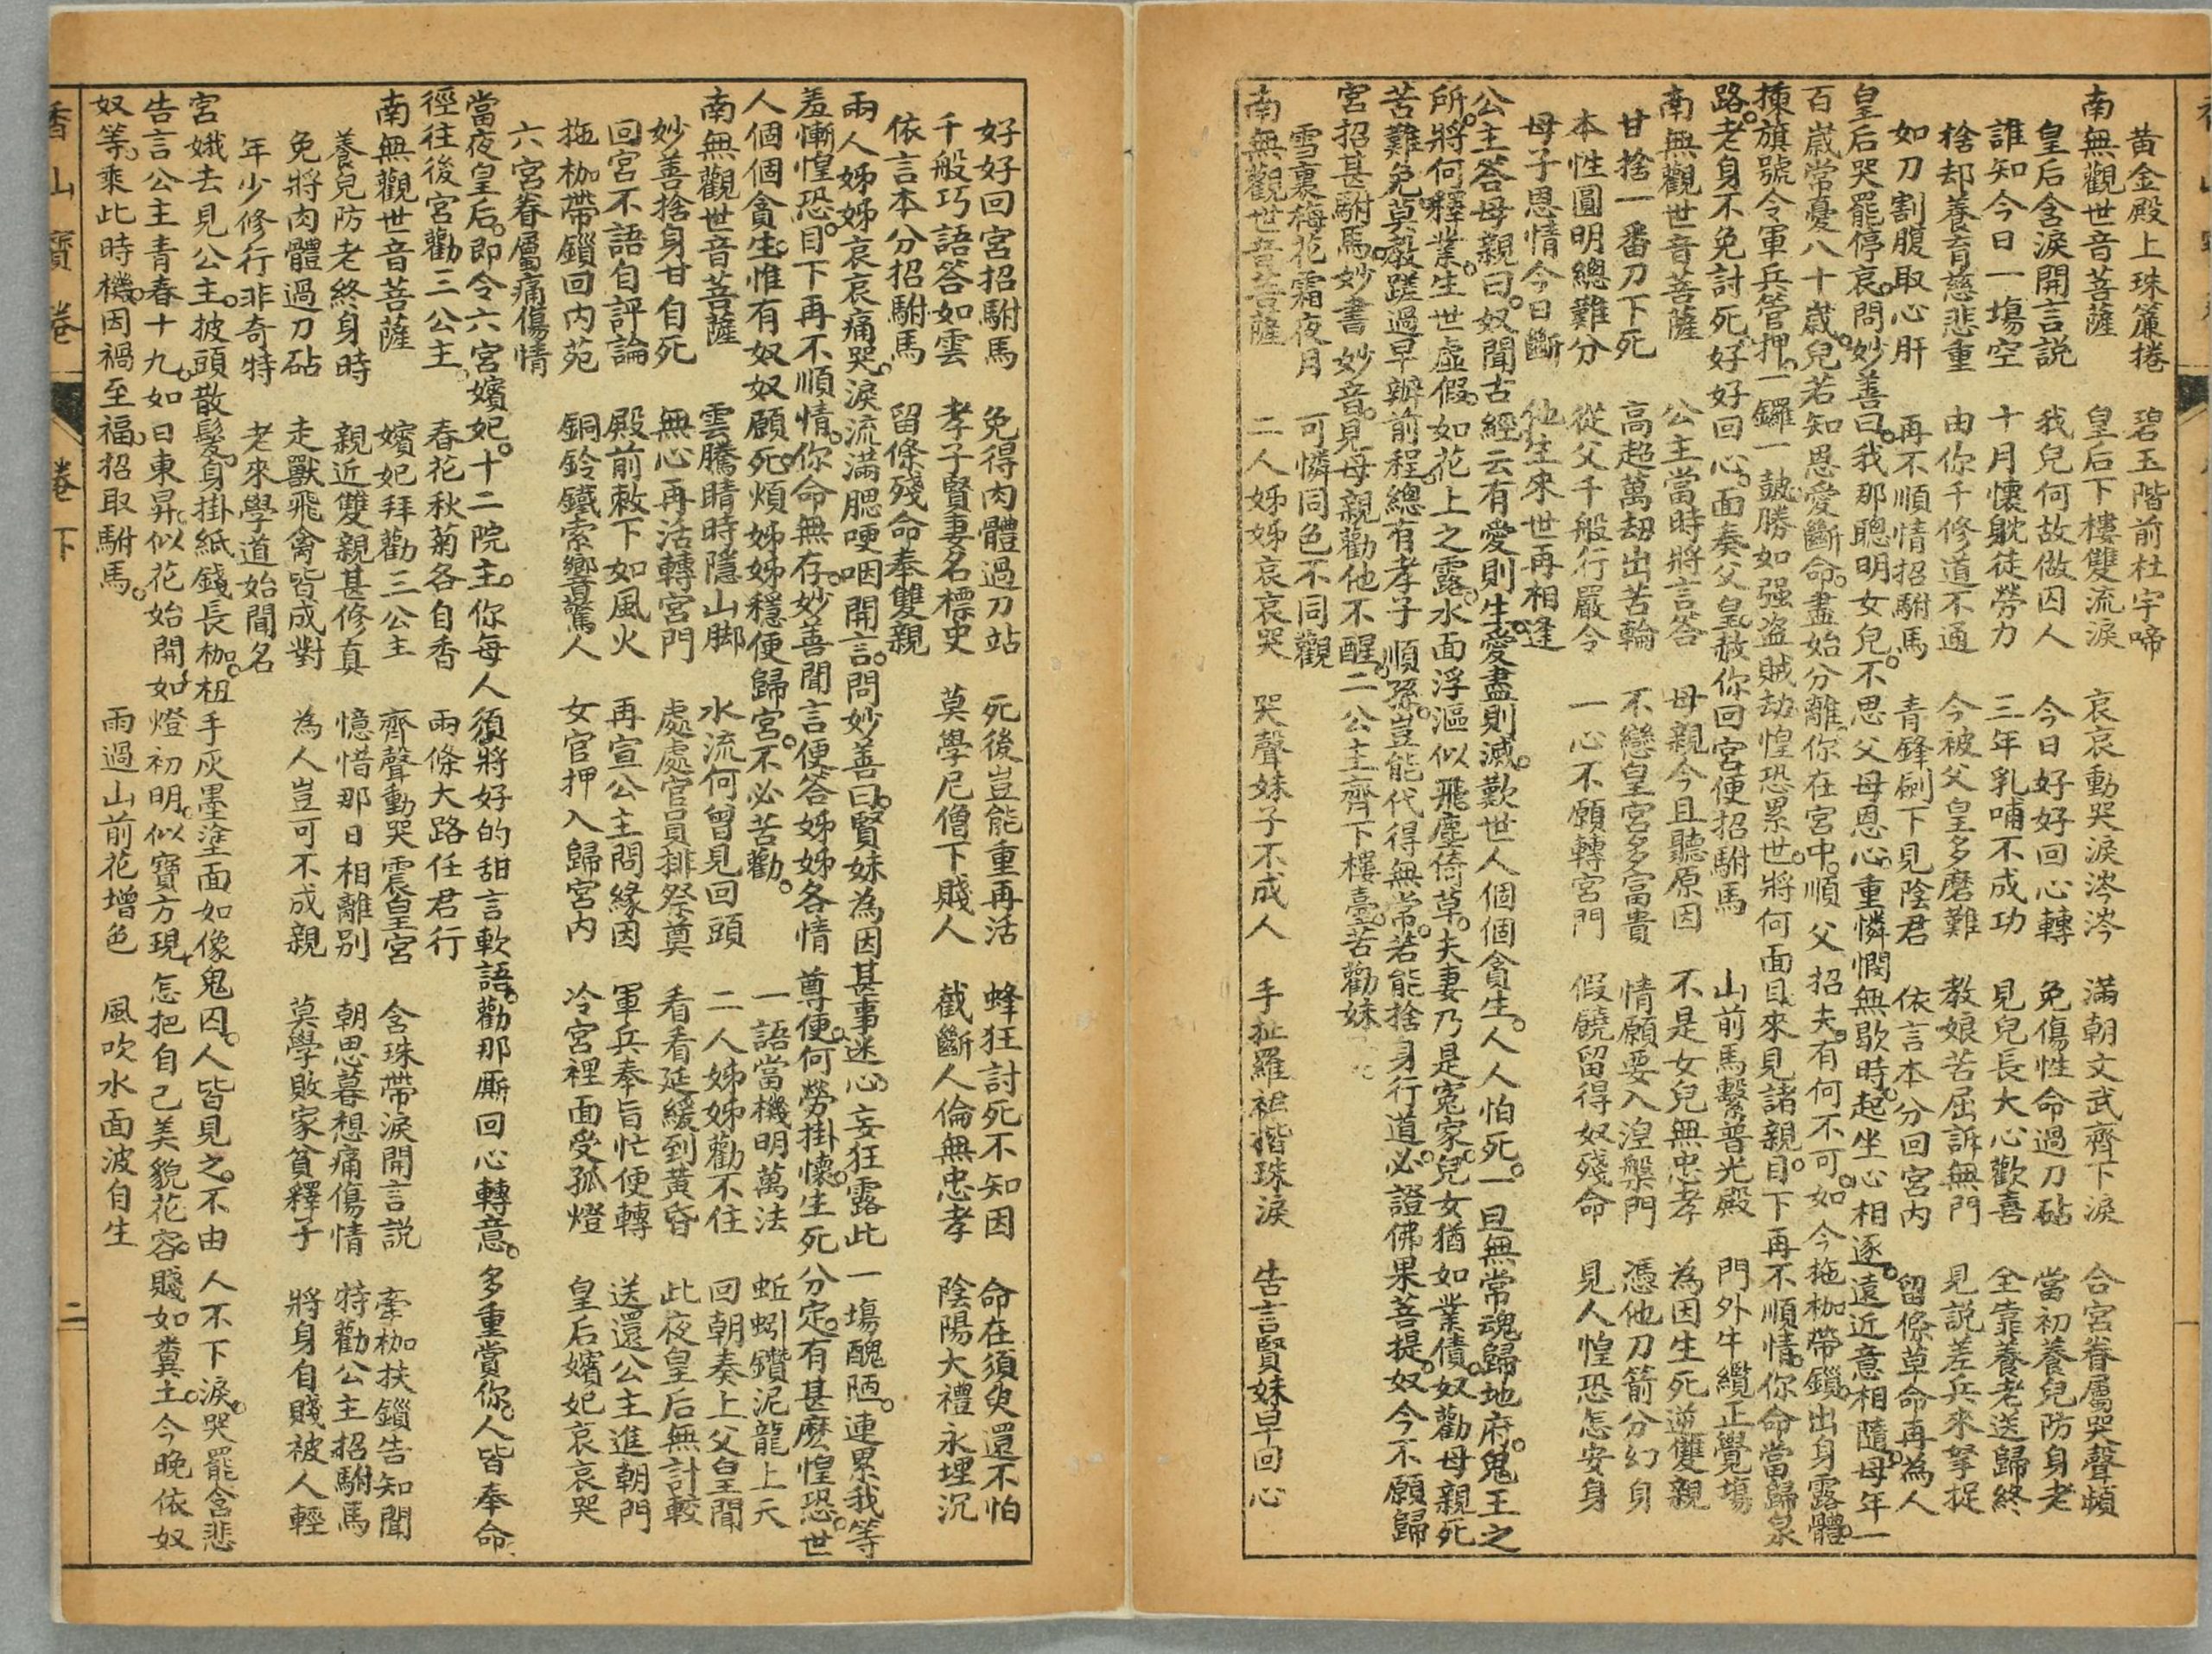 黄金殿上珠簾捲　碧玉階前杜宇啼
南無觀世音菩薩　皇后下樓雙流淚　哀哀動哭淚涔涔　滿朝文武齊下淚　合宮眷屬哭聲頻
皇后含淚開言説　我兒何故做囚人　今日好好回心轉　免傷性命過刀砧　當初養兒防身老
誰知今日一塲空　十月懷躭徒勞力　三年乳哺不成功　見兒長大心歡喜　全靠養老送歸終
捨却養育慈悲重　由你千修道不通　今被父皇多磨難　教娘苦屈訴無門　見説差兵來拏捉
如刀割腹取心肝　再不順情招駙馬　青鋒劍下見陰君　依言本分回宮内　留條草命再為人
皇后哭罷停哀。問妙善曰。我那聰明女兒。不思父母恩心。重憐憫無歇時。起坐心相逐。遠近意相隨。母年一
百歲常憂八十歲。兒若知恩愛斷。命盡始分離。你在宮中。順父招夫。有何不可。如今拖枷帶鎖。出身露體。
揀旗號令軍兵管押。一鑼一皷勝如强盗賊刼。惶恐累世。將何面目來見諸親。目下再不順情。你命當歸泉
路。老身不免討死。好好回心。面奏父皇。赦你回宮便招駙馬　山前馬繫普光殿　門外牛纜正覺塲
南無觀世音菩薩　公主當時將言答　母親今且聽原因　不是女兒無忠孝　為因生死逆雙親
甘捨一番刀下死　高超萬刼出苦輪　不戀皇宮多富貴　情願要入湼槃門　憑他刀箭分幻身
本性圓明總難分　從父千般行嚴令　一心不願轉宮門　假饒留得奴殘命　見人惶恐怎安身
母子恩情今日斷　他生來世再相逢
公主答母親曰。奴聞古經云有愛則生。愛盡則滅。歎世人個個貪生。人人怕死。一旦無常魂歸地府。鬼王之
所。將何釋業。生世虛假。如花上之露。水面浮漚似飛塵倚草。夫妻乃是寃家。兒女猶如業債。奴勸母親死
苦難免。莫教蹉過早辦前程。總有孝子順孫。豈能代得無常。若能捨身行道。必證佛果菩提。奴今不願歸
宮招甚駙馬。妙書妙音。見母親勸他不醒。二公主齊下樓臺。苦勸妹
雪裏梅花霜夜月　可憐同色不同觀
南無觀世音菩薩　二人姊姊哀哀哭　哭聲妹子不成人　手扯羅裙揩珠淚　告言賢妹早回心
好好回宮招駙馬　免得肉體過刀站　死後豈能重再活　蜂狂討死不知因　命在須臾還不怕
千般巧語答如雲　孝子賢妻名標史　莫學尼僧下賤人　截斷人倫無忠孝　陰陽大禮永埋沉
依言本分招駙馬　留條殘命奉雙親
兩人姊姊哀哀痛哭。淚流滿腮哽咽開言。問妙善曰。賢妹為因甚事迷心。妄狂露此一塲醜陋。連累我等
羞慚惶恐。目下再不順情。你命無存。妙善聞言便答姊姊各情尊便。何勞掛懷。生死分定。有甚麽惶恐。世
人個個貪生。惟有奴奴願死。煩姊姊穩便歸宮。不必苦勸。　一語當機明萬法　蚯蚓鑽泥龍上天
南無觀世音菩薩　雲騰晴時隱山脚　水流何曾見回頭　二人姊姊勸不住　回朝奏上父皇聞
妙善捨身甘自死　無心再活轉宮門　處處官員排祭奠　看看延緩到黄昏　此夜皇后無計較
回宮不語自評論　殿前敕下如風火　再宣公主問緣因　軍兵奉旨忙便轉　送還公主進朝門
拖枷帶鎖回内苑　銅鈴鐵索響驚人　女官押入歸宮内　冷宮裡面受孤燈　皇后嬪妃哀哀哭
六宮眷屬痛傷情
當夜皇后。即令六宮嬪妃。十二院主。你每人須將好的甜言軟語。勸那厮回心轉意。多重賞你。人皆奉命
徑往後宮勸三公主。　春花秋菊各自香　兩條大路任君行
南無觀世音菩薩　嬪妃拜勸三公主　齊聲動哭震皇宮　含珠帶淚開言説　牽枷扶鎖告知聞
養兒防老終身時　親近雙親甚修真　憶惜那日相離别　朝思暮想痛傷情　特勸公主招駙馬
免將肉體過刀砧　走獸飛禽皆成對　為人豈可不成親　莫學敗家貧釋子　將身自賤被人輕
年少修行非奇特　老來學道始聞名
宮娥去見公主。披頭散髮。身掛紙錢長枷。杻手灰墨塗面如像鬼囚。人皆見之。不由人不下淚。哭罷含悲
告言公主青春十九。如日東昇。似花始開。如燈初明。似寶方現。怎把自己美貌花容。賤如糞土。今晚依奴
奴等。乘此時機。因禍至福。招取駙馬。　雨過山前花增色　風吹水面波自生
香山寶卷　卷下　二